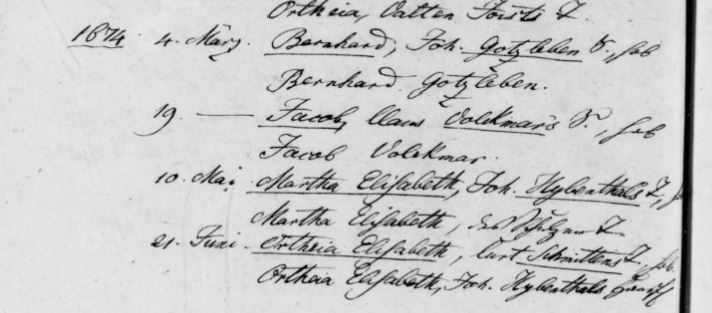 Ortheia, Valten Forsts T.
1674 4. März. Bernhard, Joh. Gotzleben S., sub
Bernhard Gotzleben.
19. — Jacob, Claus Volckmars S., sub
Jacob Volckmar.
10. Mai Martha Elisabeth, Joh. Hybenthals T.,
Martha Elisabeth, des T.
21. Juni. Ortheia Elisabeth, Curt Schmittens T., sub.
Ortheia Elisabeth, Joh. Hybenthals